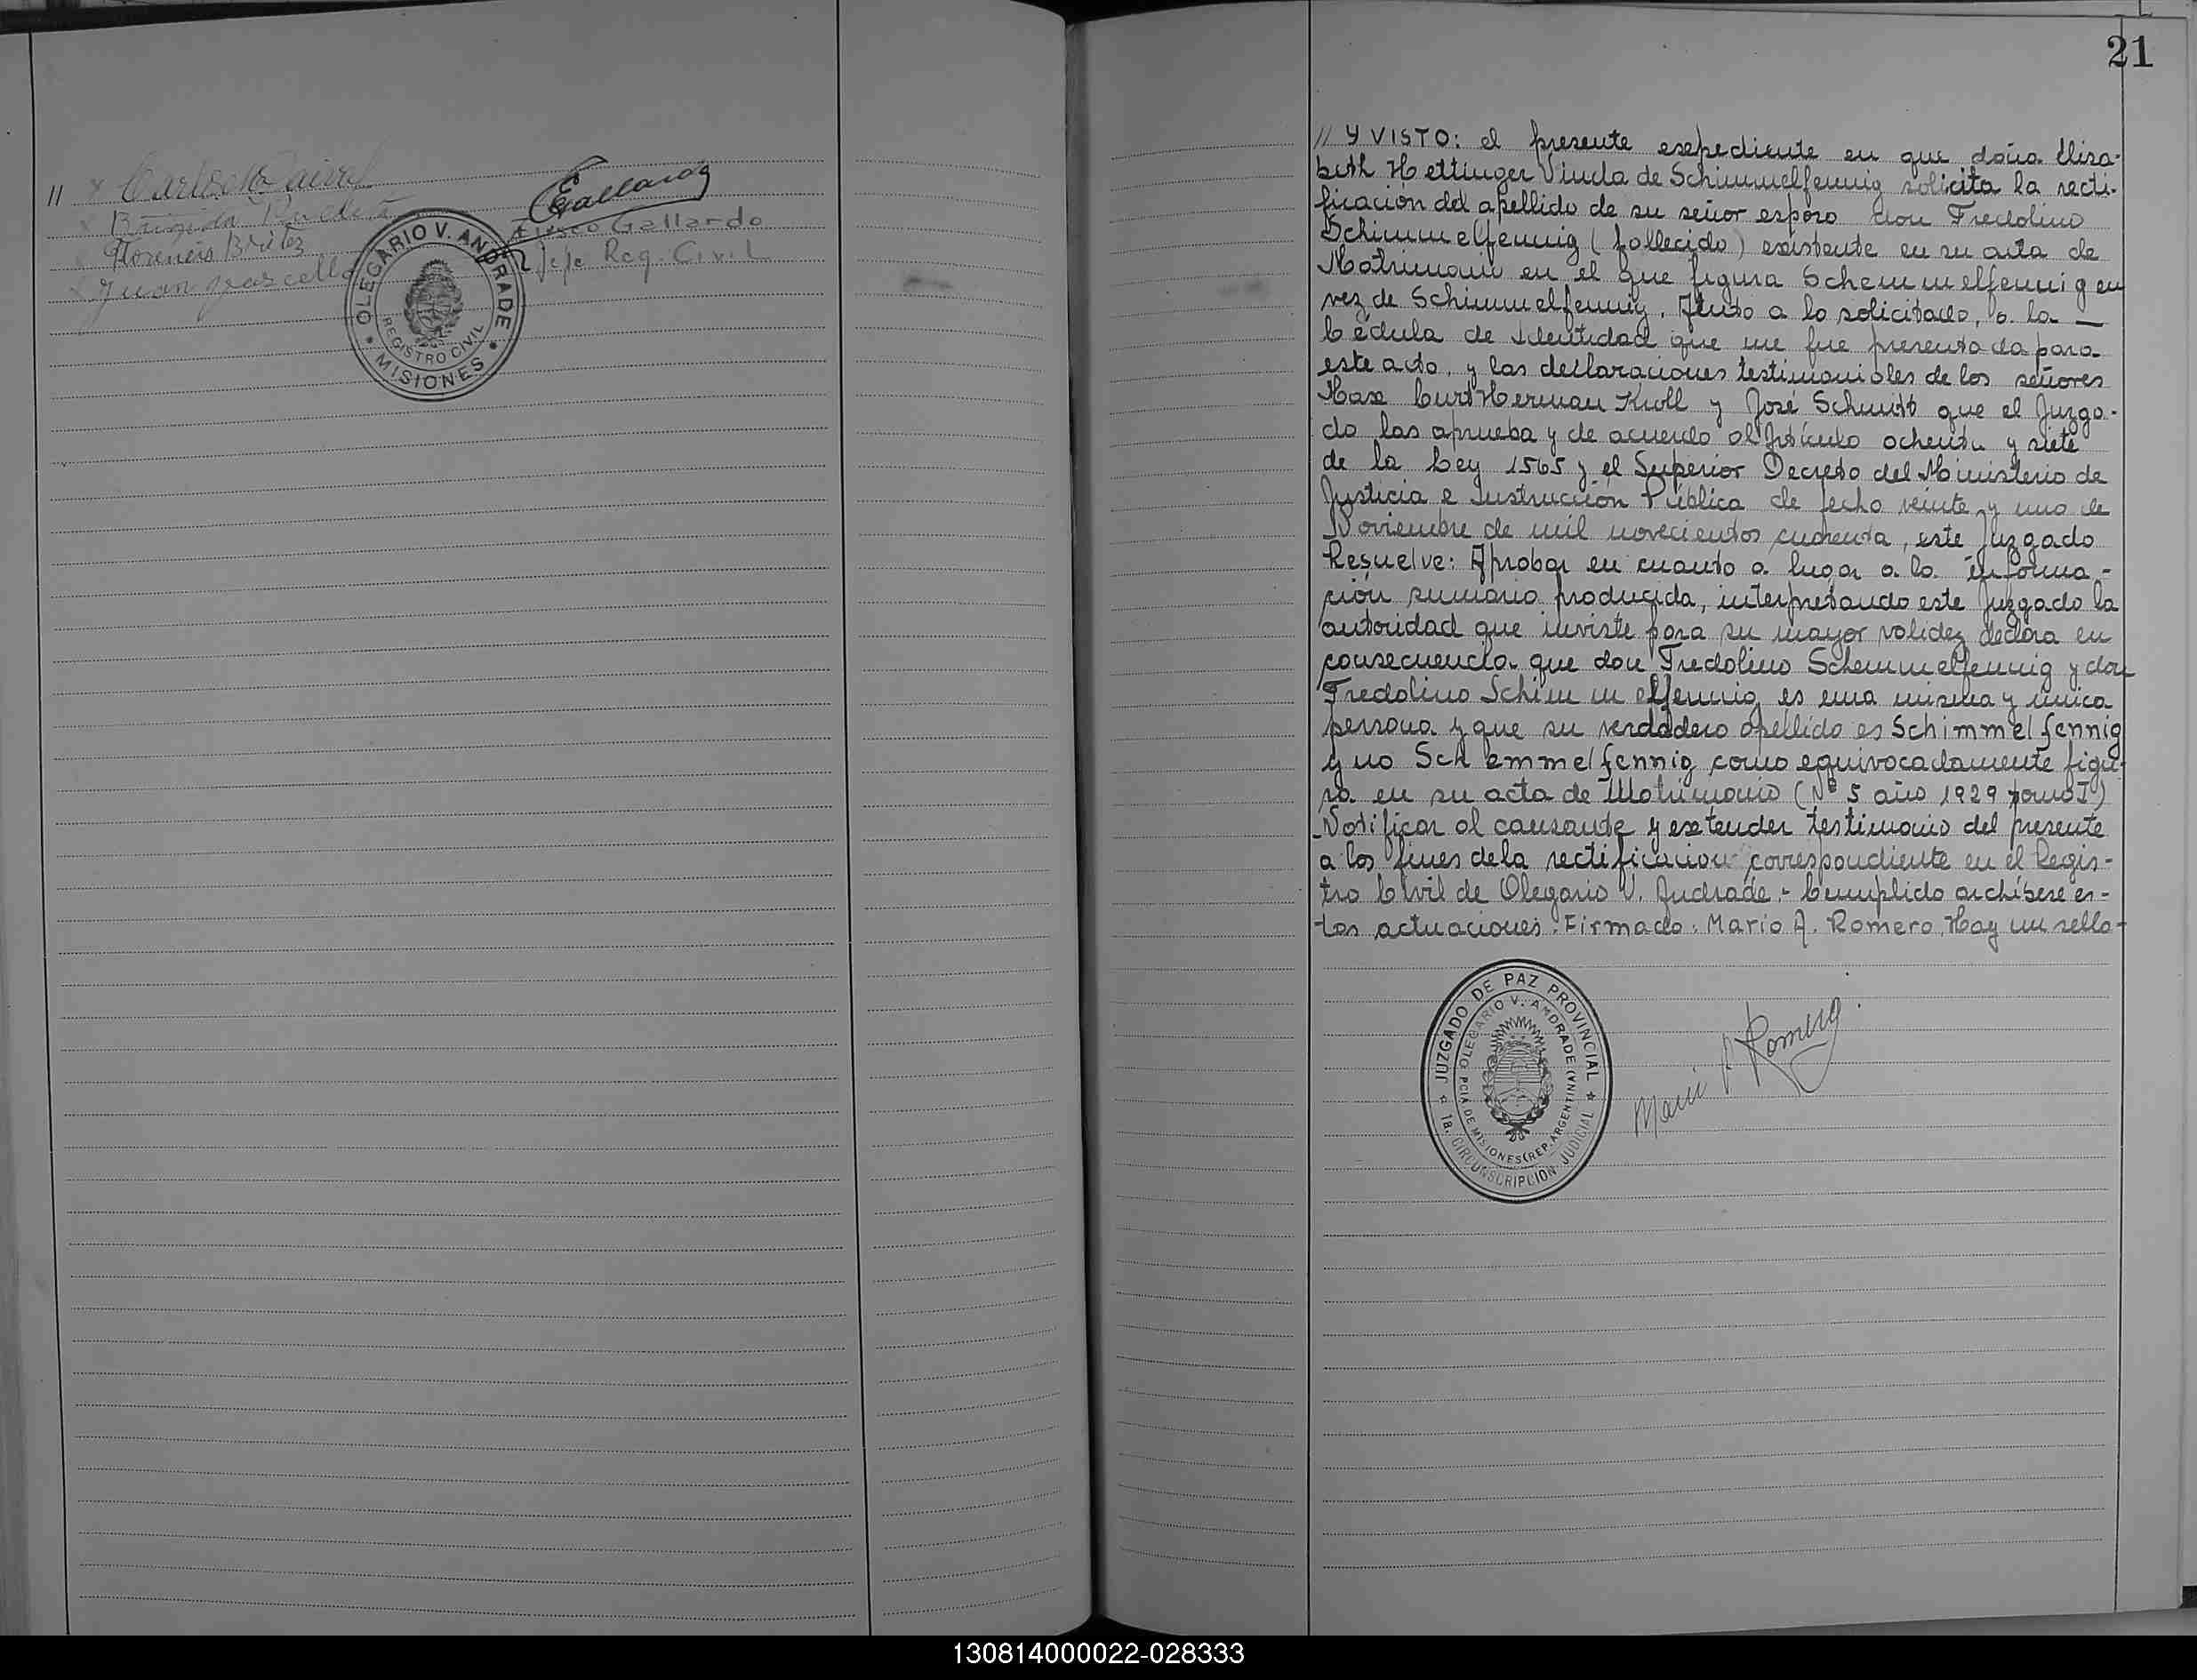 // Gallardo
Brigida
Florencio Britez
Juan
Eliseo Gallardo
Jefe Reg. Civil
OLEGARIO V. ANDRADE
REGISTRO CIVIL
MISIONES
21
// Y VISTO: el presente expediente en que doña Elisa-
beth Hettinger Viuda de Schimmelfennig solicita la recti-
ficación del apellido de su señor esposo don Fredolino
Schimmelfennig (fallecido) existente en su acta de
Matrimonio en el que figura Schemmelfennig en
vez de Schimmelfennig. Atento a lo solicitado, a la —
Cédula de Identidad que me fue presentada para
este acto, y las declaraciones testimoniales de los señores
Max Curt Herman Kroll y José Schmitt que el Juzga-
do las aprueba y de acuerdo al Artículo ochenta y siete
de la Ley 1565 y el Superior Decreto del Ministerio de
Justicia e Instrucción Pública de fecha veinte y uno de
Noviembre de mil novecientos cuarenta, este Juzgado
Resuelve: Aprobar en cuanto a lugar a la informa-
ción sumaria producida, interpretando este Juzgado la
autoridad que inviste para su mayor validez declara en
consecuencia que don Fredolino Schemmelfennig y don
Fredolino Schimmelfennig es una misma y única
persona y que su verdadero apellido es Schimmelfennig
y no Schemmelfennig como equivocadamente figu-
ra en su acta de Matrimonio (Nº 5 año 1929 tomo I)
Notificar al causante y extender testimonio del presente
a los fines de la rectificacion correspondiente en el Regis-
tro Civil de Olegario V. Andrade.- Cumplido archívese es-
tas actuaciones. Firmado: Mario A. Romero. Hay un sello-
JUZGADO DE PAZ PROVINCIAL
OLEGARIO V. ANDRADE
PCIA DE MISIONES (REP. ARGENTINA)
1a. CIRCUNSCRIPCION JUDICIAL
Mario A Romero
130814000022-028333